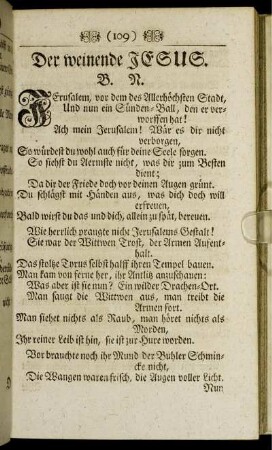 (109)
Der weinende JESUS.
B. N.
JErusalem, vor dem des Allerhöchsten Stadt,
Und nun ein Sünden-Ball, den er ver-
worffen hat!
Ach mein Jerusalem! Wär es dir nicht
verborgen,
So würdest du wohl auch für deine Seele sorgen.
So siehst du Aermste nicht, was dir zum Besten
dient;
Da dir der Friede doch vor deinen Augen grünt.
Du schlägst mit Händen aus, was dich doch will
erfreuen,
Bald wirst du das und dich, allein zu spät, bereuen.
Wie herrlich prangte nicht Jerusalems Gestalt!
Sie war der Wittwen Trost, der Armen Aufent-
halt.
Das stolze Tyrus selbst halff ihren Tempel bauen.
Man kam von ferne her, ihr Antlitz anzuschauen:
Was aber ist sie nun? Ein wilder Drachen-Ort.
Man saugt die Wittwen aus, man treibt die
Armen fort.
Man siehet nichts als Raub, man höret nichts als
Morden,
Ihr reiner Leib ist hin, sie ist zur Hure worden.
Vor brauchte noch ihr Mund der Buhler Schmin-
cke nicht,
Die Wangen waren frisch, die Augen voller Licht.
Nun